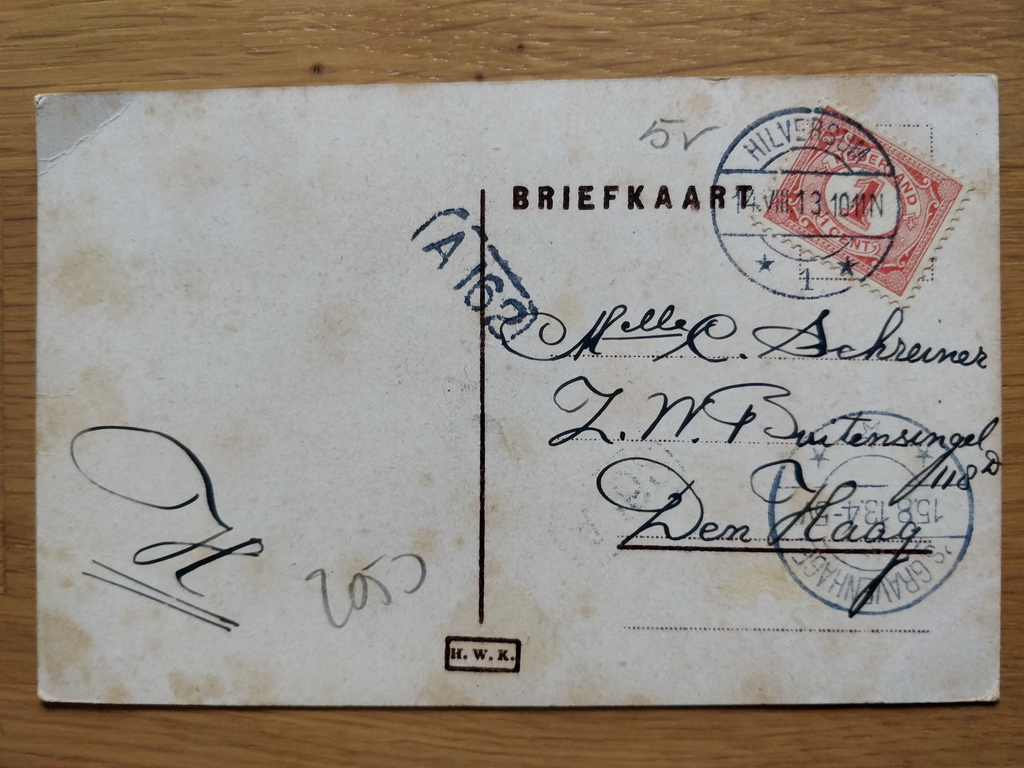 5v
HILVERSUM
14.VIII.13.10-11N
1
NEDERLAND
1
1 CENT
BRIEFKAART
A 162
Melle C. Schreiner
Z. W. Buitensingel
118 D
Den Haag
15.8.13.4-5V
'S GRAVENHAGE
H
2050
H. W. K.